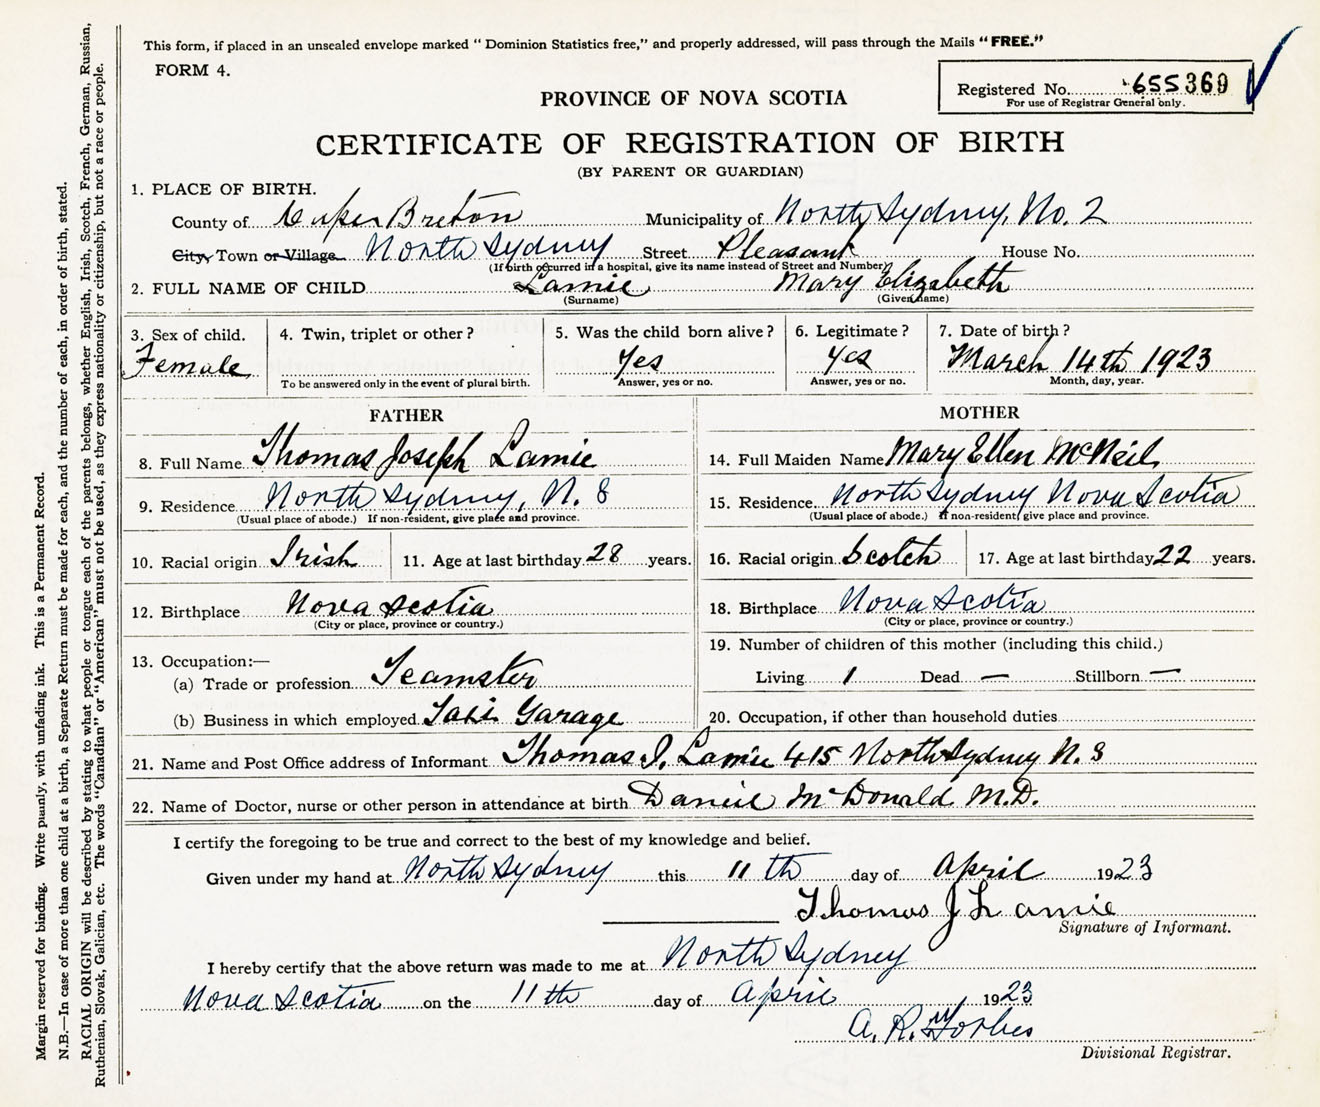 This form, if placed in an unsealed envelope marked “ Dominion Statistics free,” and properly addressed, will pass through the Mails “FREE.”
FORM 4.
Registered No. 655369
For use of Registrar General only.
PROVINCE OF NOVA SCOTIA
CERTIFICATE OF REGISTRATION OF BIRTH
(BY PARENT OR GUARDIAN)
1. PLACE OF BIRTH.
County of Cape Breton Municipality of North Sydney, No. 2
City, Town or Village North Sydney Street Pleasant House No.
(If birth occurred in a hospital, give its name instead of Street and Number)
2. FULL NAME OF CHILD Lamie Mary Elizabeth
(Surname) (Given name)
3. Sex of child. 4. Twin, triplet or other? 5. Was the child born alive? 6. Legitimate? 7. Date of birth?
Female Yes Yes March 14th 1923
To be answered only in the event of plural birth. Answer, yes or no. Answer, yes or no. Month, day, year.
FATHER
8. Full Name Thomas Joseph Lamie
9. Residence North Sydney, N. S
(Usual place of abode.) If non-resident, give place and province.
10. Racial origin Irish 11. Age at last birthday 28 years.
12. Birthplace Nova Scotia
(City or place, province or country.)
13. Occupation:—
(a) Trade or profession Teamster
(b) Business in which employed Taxi Garage
MOTHER
14. Full Maiden Name Mary Ellen McNeil
15. Residence North Sydney Nova Scotia
(Usual place of abode.) If non-resident, give place and province.
16. Racial origin Scotch 17. Age at last birthday 22 years.
18. Birthplace Nova Scotia
(City or place, province or country.)
19. Number of children of this mother (including this child.)
Living 1 Dead — Stillborn —
20. Occupation, if other than household duties
21. Name and Post Office address of Informant Thomas J. Lamie 415 North Sydney N. S
22. Name of Doctor, nurse or other person in attendance at birth Daniel McDonald M.D.
I certify the foregoing to be true and correct to the best of my knowledge and belief.
Given under my hand at North Sydney this 11th day of April 1923
Thomas J Lamie
Signature of Informant.
I hereby certify that the above return was made to me at North Sydney
Nova Scotia on the 11th day of April 1923
A. R. Forbes
Divisional Registrar.
Margin reserved for binding. Write plainly, with unfading ink. This is a Permanent Record.
N.B.—In case of more than one child at a birth, a Separate Return must be made for each, and the number of each, in order of birth, stated.
RACIAL ORIGIN will be described by stating to what people or tongue each of the parents belongs, whether English, Irish, Scotch, French, German, Russian,
Ruthenian, Slovak, Galician, etc. The words “Canadian” or “American” must not be used, as they express nationality or citizenship, but not a race or people.